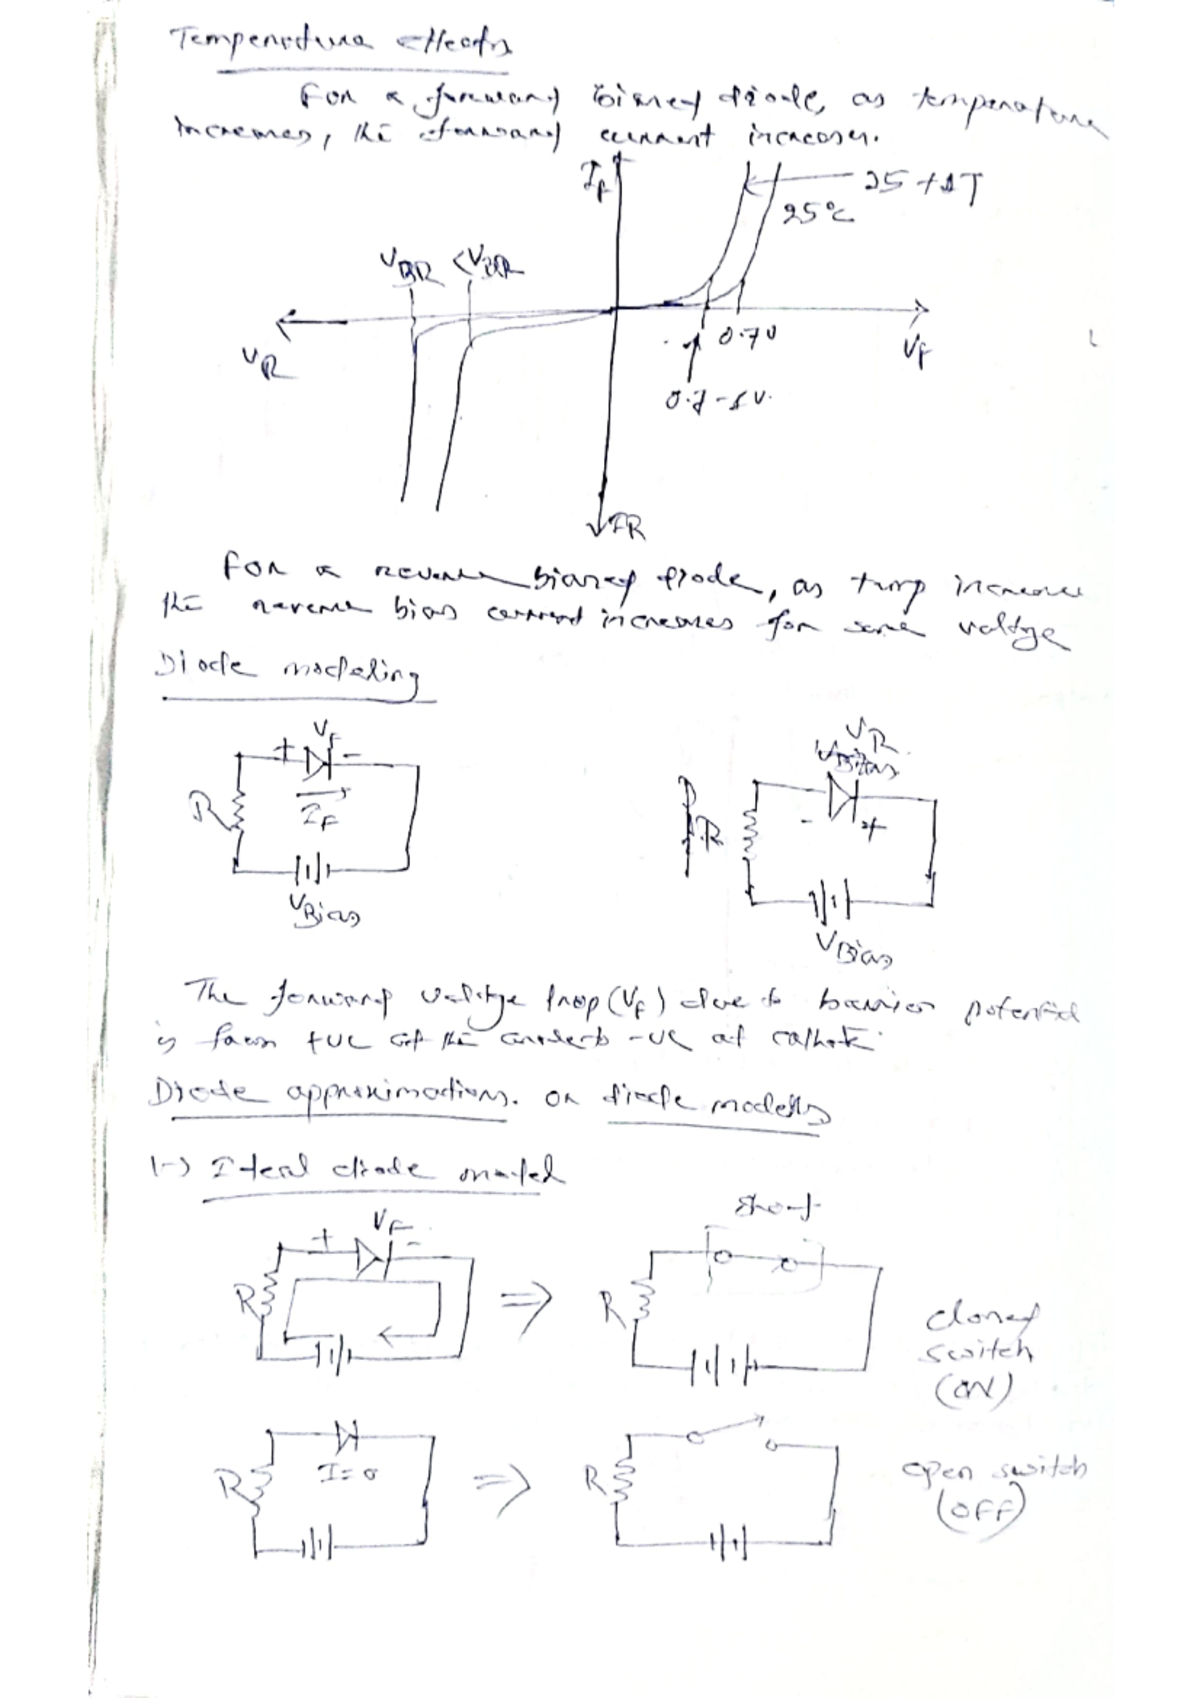 Temperature effects
For a forward biased diode, as temperature
increases, the forward current increases.
IF
25 + ΔT
25°C
VBR <VBR
VR
0.7V
VF
0.7-ΔV.
IR
For a reverse biased diode, as temp increases
the reverse bias current increases for same voltage
Diode modeling
+ VF -
R
IF
VBias
VR
VBias
R
- +
VBias
The forward voltage drop (VF) due to barrier potential
is from +ve at the anode to -ve at cathode.
Diode approximations. or diode models
1-) Ideal diode model
+ VF -
R
⇒
Short
R
closed
switch
(ON)
R
I=0
⇒
R
open switch
(OFF)